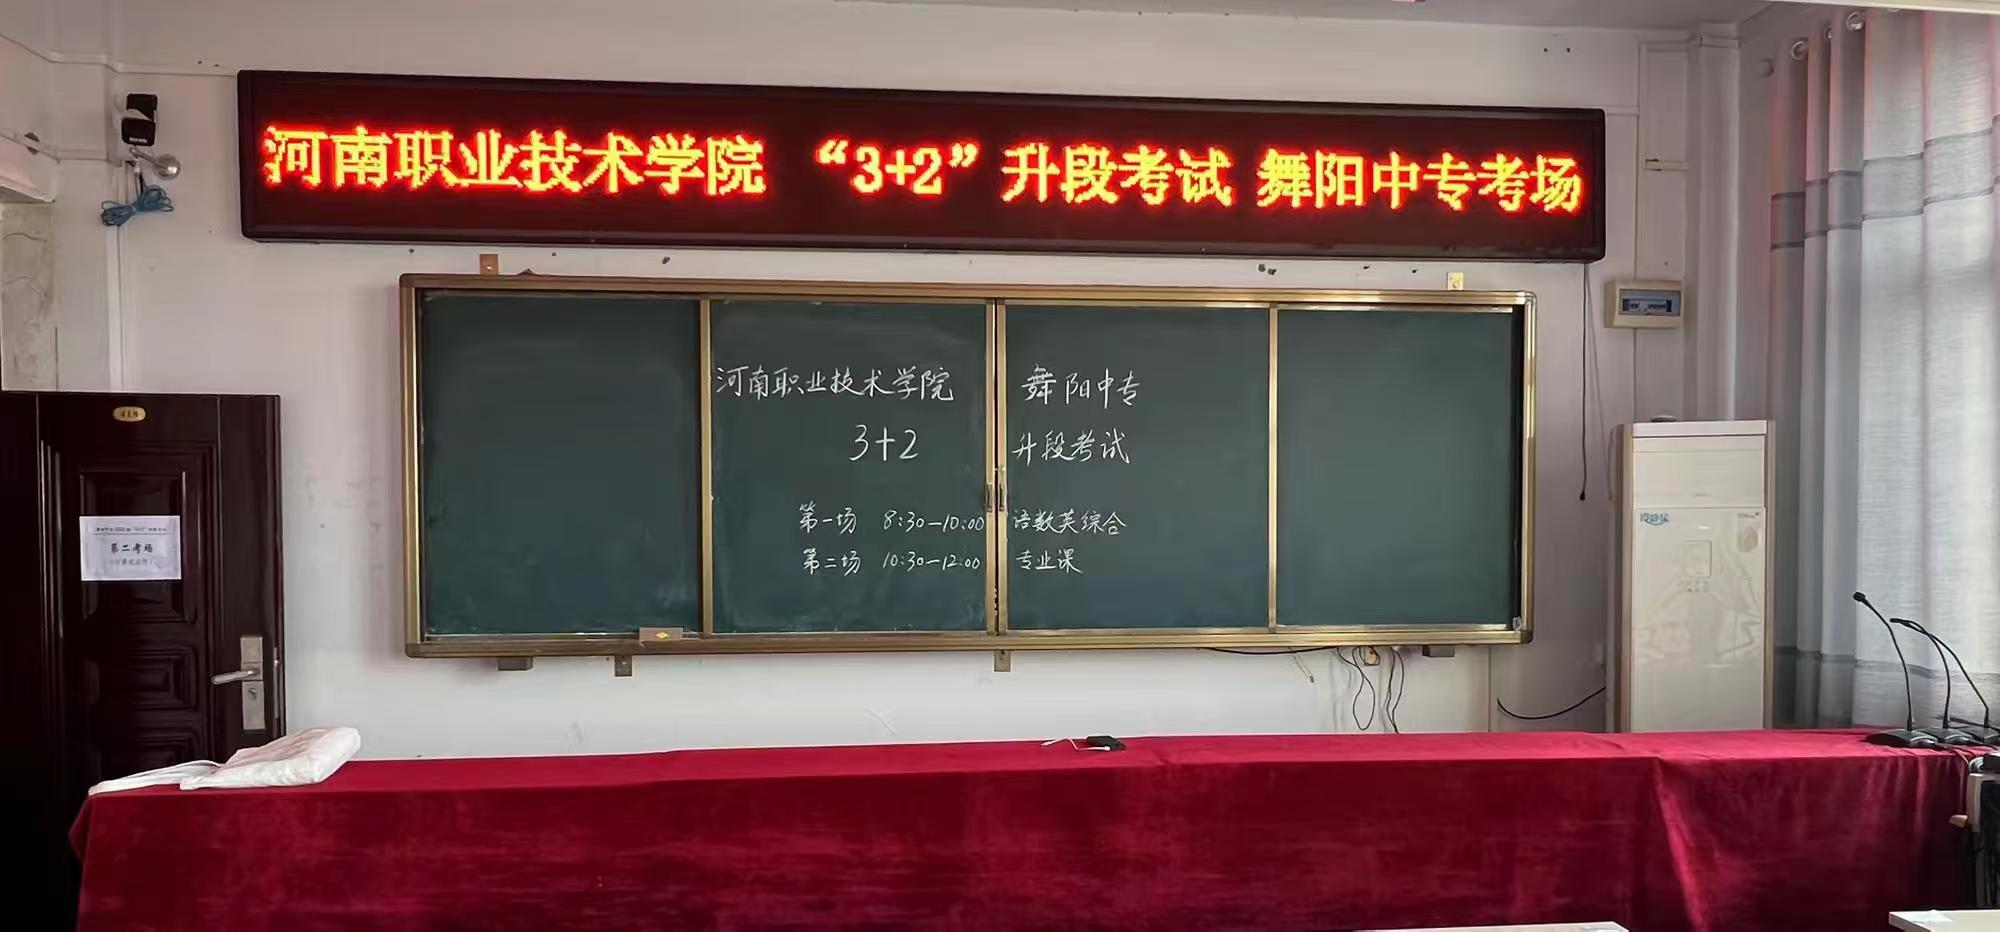 河南职业技术学院 “3+2”升段考试 舞阳中专考场
河南职业技术学院 舞阳中专
3+2 升段考试
第一场 8:30—10:00 语数英综合
第二场 10:30—12:00 专业课
418
第二考场